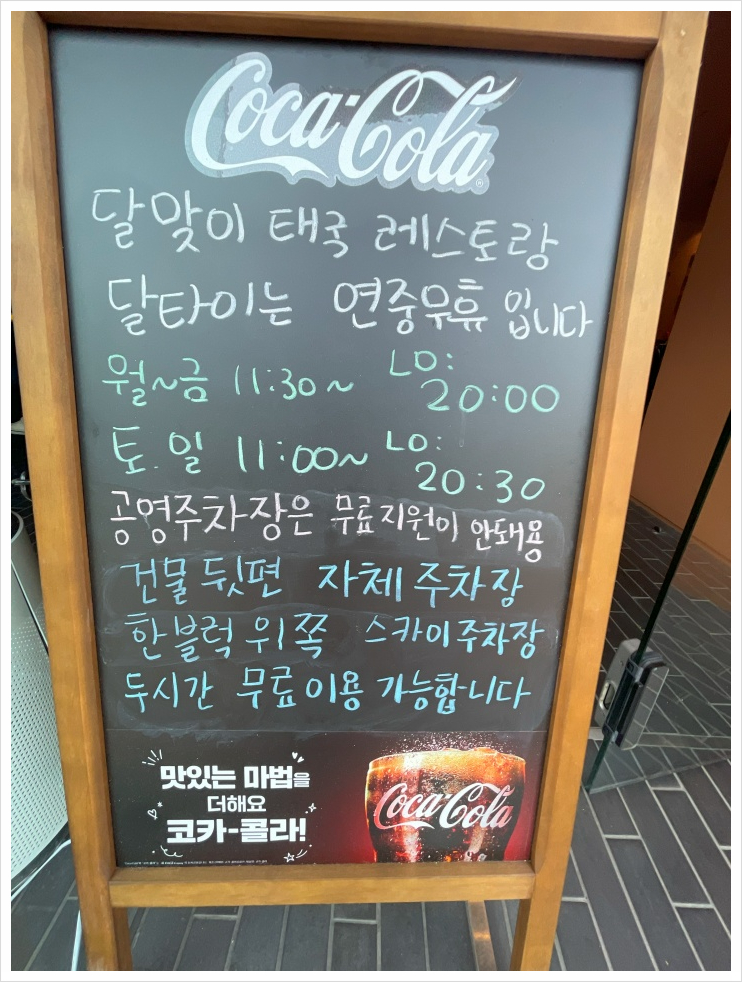 Coca-Cola
달맞이 태국 레스토랑
달타이는 연중무휴 입니다
월~금 11:30~ LO: 20:00
토.일 11:00~ LO: 20:30
공영주차장은 무료지원이 안돼용
건물 뒷편 자체 주차장
한블럭 위쪽 스카이주차장
두시간 무료이용 가능합니다
맛있는 마법을
더해요
코카-콜라!
Coca-Cola